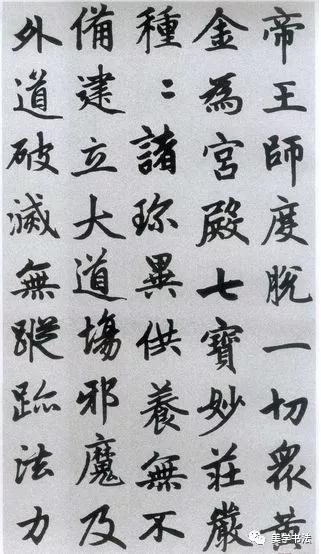 帝王師度脫一切眾黃
金為宮殿七寶妙莊嚴
種〻諸珎異供養無不
備建立大道場邪魔及
外道破滅無蹤跡法力
美学书法